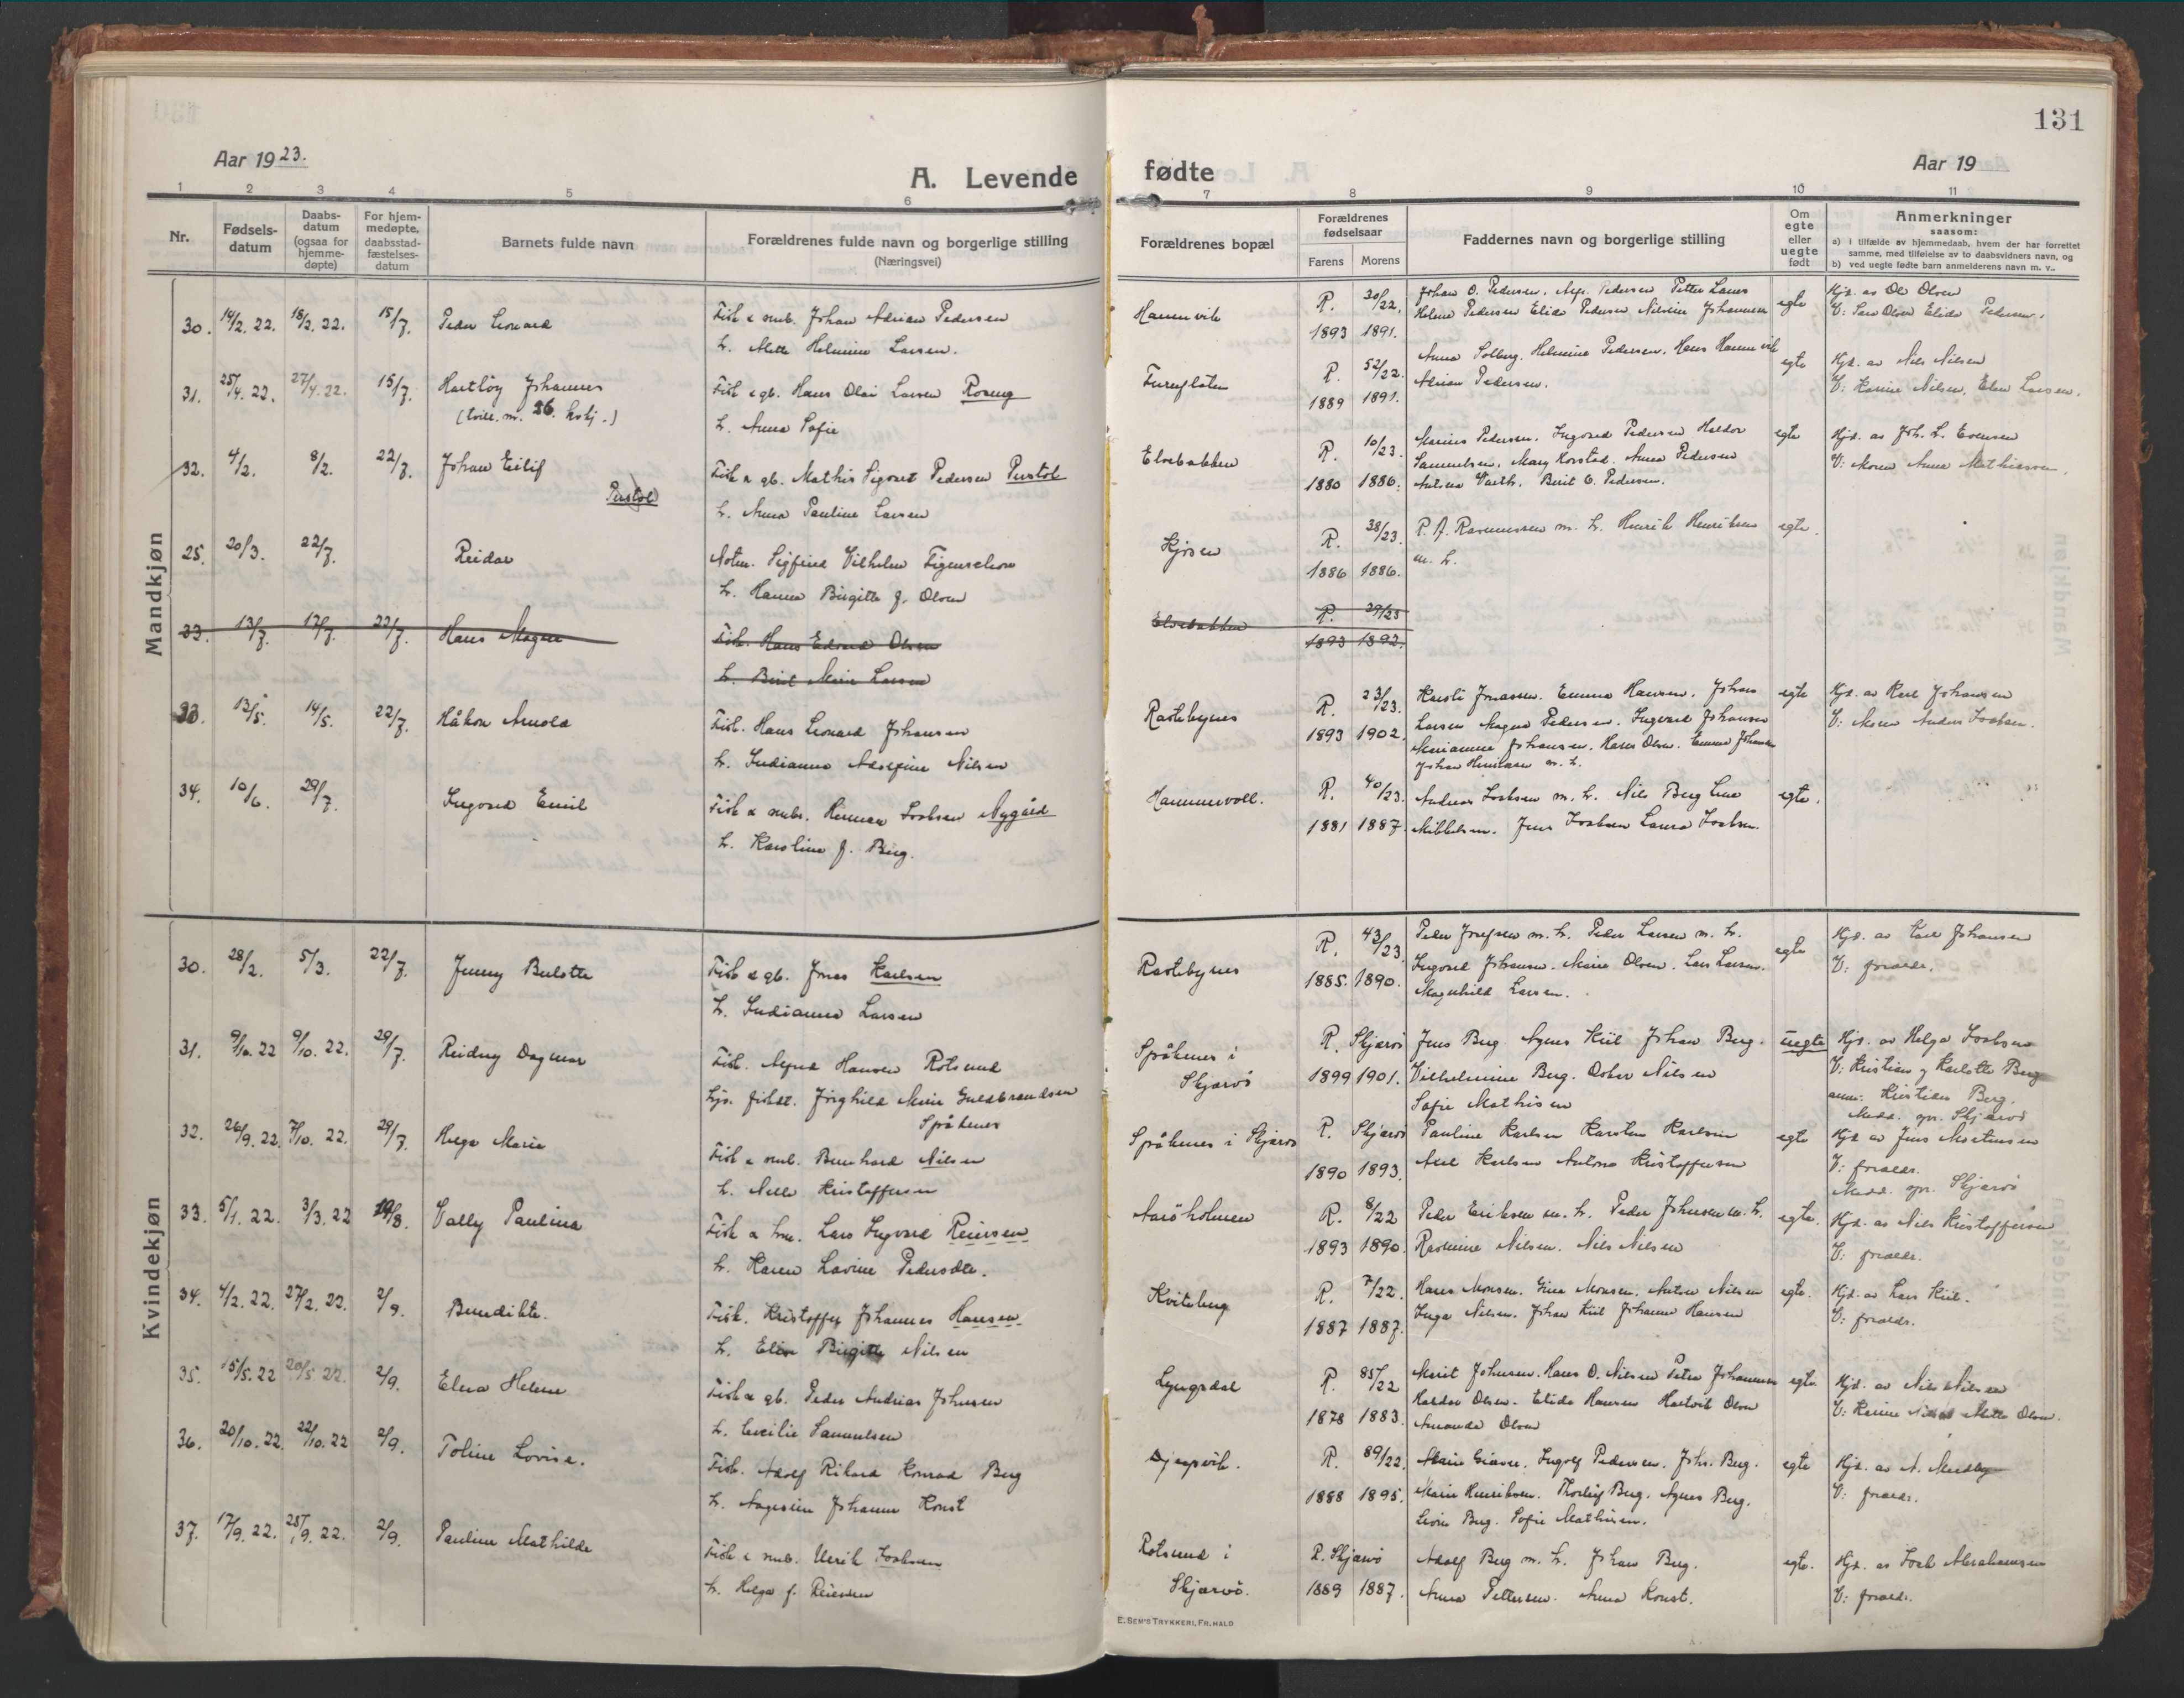 131
Aar 1923.
A. Levende
fødte
Aar 19
1 2 3 4 5 6
7 8 9 10 11
Nr.
Fødsels-
datum
Daabs-
datum
(ogsaa for
hjemme-
døpte)
For hjem-
medøpte,
daabsstad-
fæstelses-
datum
Barnets fulde navn
Forældrenes fulde navn og borgerlige stilling
(Næringsvei)
Forældrenes bopæl
Forældrenes
fødselsaar
Farens Morens
Faddernes navn og borgerlige stilling
Om
egte
eller
uegte
født
Anmerkninger
saasom:
a) i tilfælde av hjemmedaab, hvem der har forrettet
samme, med tilføielse av to daabsvidners navn, og
b) ved uegte fødte barn anmelderens navn m. v..
Mandkjøn
30. 14/2. 22. 18/2. 22. 15/7. Peder Leonard
Fisk & smb. Johan Adrian Pedersen
h. Mette Helmine Larsen.
Havnnvik R. 30/22.
1893 1891.
Johan O. Pedersen. Pedersen Petter Larus
Helene Pedersen Elida Pedersen Nilsine Johannesen
egte
Hjd. av Ole Olsen
V: Sara Olsen Elida Pedersen.
31. 25/4. 22. 27/4. 22. 15/7. Hartløg Johannes
(tvill. m. 26. kvkj.)
Fisk & gb. Hans Olai Larsen Roseng
h. Anna Sofie
Furuflaten R. 52/22.
1889 1891.
Anna Solberg. Helmine Pedersen. Hans Hamnvik
Adrian Pedersen.
egte
Hjd. av Nils Nilsen
V: Karine Nilsen, Elen Larsen.
32. 4/2. 8/2. 22/7. Johan Eilif
Pustol
Fisk & gb. Mathis Sigvart Pedersen Pustol
h. Anna Pauline Larsen
Elvebakken R. 10/23.
1880 1886.
Marius Pedersen. Ingvard Pedersen Haldor
Samuelsen. Mary Korstad. Anna Pedersen
Berit O. Pedersen.
egte
Hjd. av Joh. L. Evensen
V: Moren Anna Mathiassen.
25. 20/3. 22/7. Reidar
Notm. Sigfred Vilhelm Figenschou
h. Hanna Birgitte f. Olsen
Kjosen R. 38/23.
1886 1886.
P. A. Rasmussen m. h. Henrik Henriksen
m. h.
egte.
33. 13/7. 17/7. 22/7. Hans Magnr
Fisk. Hans Edvard Olsen
h. Berit Marie Larsen
Elvebakken R. 29/23
1893 1892.
33. 12/5. 14/5. 22/7. Håkon Arnold
Fisk. Hans Leonard Johansen
h. Indianna Adesefine Nilsen
Rastebynes R. 23/23.
1893 1902.
Karsti Jonassen. Emma Hansen. Johan
Larsen Magna Pedersen. Ingvard Johansen
Marianna Johansen. Hans Olsen. Emma Johansen
Johan Henriksen m. h.
egte
Hjd. av Karl Johansen
V: Moren Anders Isaksen.
34. 10/6. 29/7. Ingvard Emil
Fisk & smbr. Herman Isaksen Nygård
h. Karoline f. Berg.
Hammervoll. R. 40/23.
1881 1887.
Andreas Isaksen m. h. Nils Berg Lina
Mikkelsen. Jens Isaksen Laura Isaksen.
egte.
Kvindekjøn
30. 28/2. 5/3. 22/7. Jenny Bulotte
Fisk & gb. Jonas Karlsen
h. Indianna Larsen
Rastebynes R. 43/23.
1885. 1890.
Peder Josefsen m. h. Peder Larsen m. h.
Ingvard Johansen. Marie Olsen. Lars Larsen.
Magnhild Larsen.
egte
Hjd. av Karl Johansen
V: forældr.
31. 9/10. 22 9/10. 22. 29/7. Reidny Dagmar
Fisk. Alfred Hansen Rotsund
Ljo. fiskdt. Jørghild Marie Guldbrandsen
Spåkenes
Spåkenes i
Skjærvö
R. Skjærvö
1899 1901.
Jens Berg Agnes Kiil Johan Berg.
Vilhelmine Berg. Oskar Nilsen
Sofie Mathisen
uegte
Hjd. av Helga Isaksen
V: Kristian og Karlotte Berg
anm: Kristian Berg.
Medd. spr. Skjærvö
32. 26/9. 22. 7/10. 22. 29/7. Helga Marie
Fisk & smb. Bernhard Nilsen
h. Nella Kristoffersen
Spåkenes i Skjærvö R. Skjærvö
1890 1893.
Pauline Karlsen Karsten Karlsen
Axel Karlsen Antona Kristoffersen
egte
Hjd av Jens Mortensen
V: forældr.
Medd. spr. Skjærvö
33. 5/1. 22. 3/3. 22 19/8. Vally Paulina
Fisk & lm. Lars Ingvard Reiersen
h. Karen Lavine Pedersdtr.
Aaröholmen R. 8/22
1893 1890.
Peder Eriksen m. h. Peder Johnsen m. h.
Rasmine Nilsen. Nils Nilsen
egte.
Hjd. av Nils Kristoffersen
V: forældr.
34. 4/2. 22. 27/2. 22. 2/9. Bendikte.
Fisk. Kristoffer Johannes Hansen.
h. Elen Birgitte Nilsen
Kviteberg R. 7/22.
1887 1887.
Hans Monsen. Gina Monsen. Anton Nilsen
Inga Nilsen. Johan Kiil Johanne Hansen
egte.
Hjd. av Lars Kiil.
V: forældr.
35. 15/5. 22 20/5. 22. 2/9. Elna Helene
Fisk & gb. Peder Andreas Johnsen
h. Cecilie Samuelsen
Lyngsdal R. 85/22
1878 1883.
Marit Johnsen. Hans O. Nilsen Peter Johannesen
Haldor Olsen. Elida Hansen Hartvik Olsen
Amanda Olsen
egte.
Hjd. av Nils Nilsen
V: Karine Nilsen Mette Olsen.
36. 20/10. 22. 22/10. 22 2/9. Toline Lovise.
Fisk. Adolf Rikard Konrad Berg
h. Aagesine Johanne Konst
Djupvik. R. 89/22.
1888 1895.
Marie Giæver. Ingolf Pedersen. Johs. Berg.
Marie Henriksen. Thorleif Berg. Agnes Berg.
Lovise Berg. Sofie Mathisen.
egte
Hjd. av A. Medby
V: forældr.
37. 17/9. 22. 25/9. 22. 2/9. Pauline Mathilde
Fisk & smb. Ulrik Isaksen
h. Helga f. Reiersen
Rotsund i
Skjærvö.
R. Skjærvö
1889 1887.
Adolf Berg m. h. Johan Berg.
Anna Pettersen. Anna Konst.
egte.
Hjd. av Isak Abrahamsen
V: forældr.
E. SEM'S TRYKKERI, FR.HALD